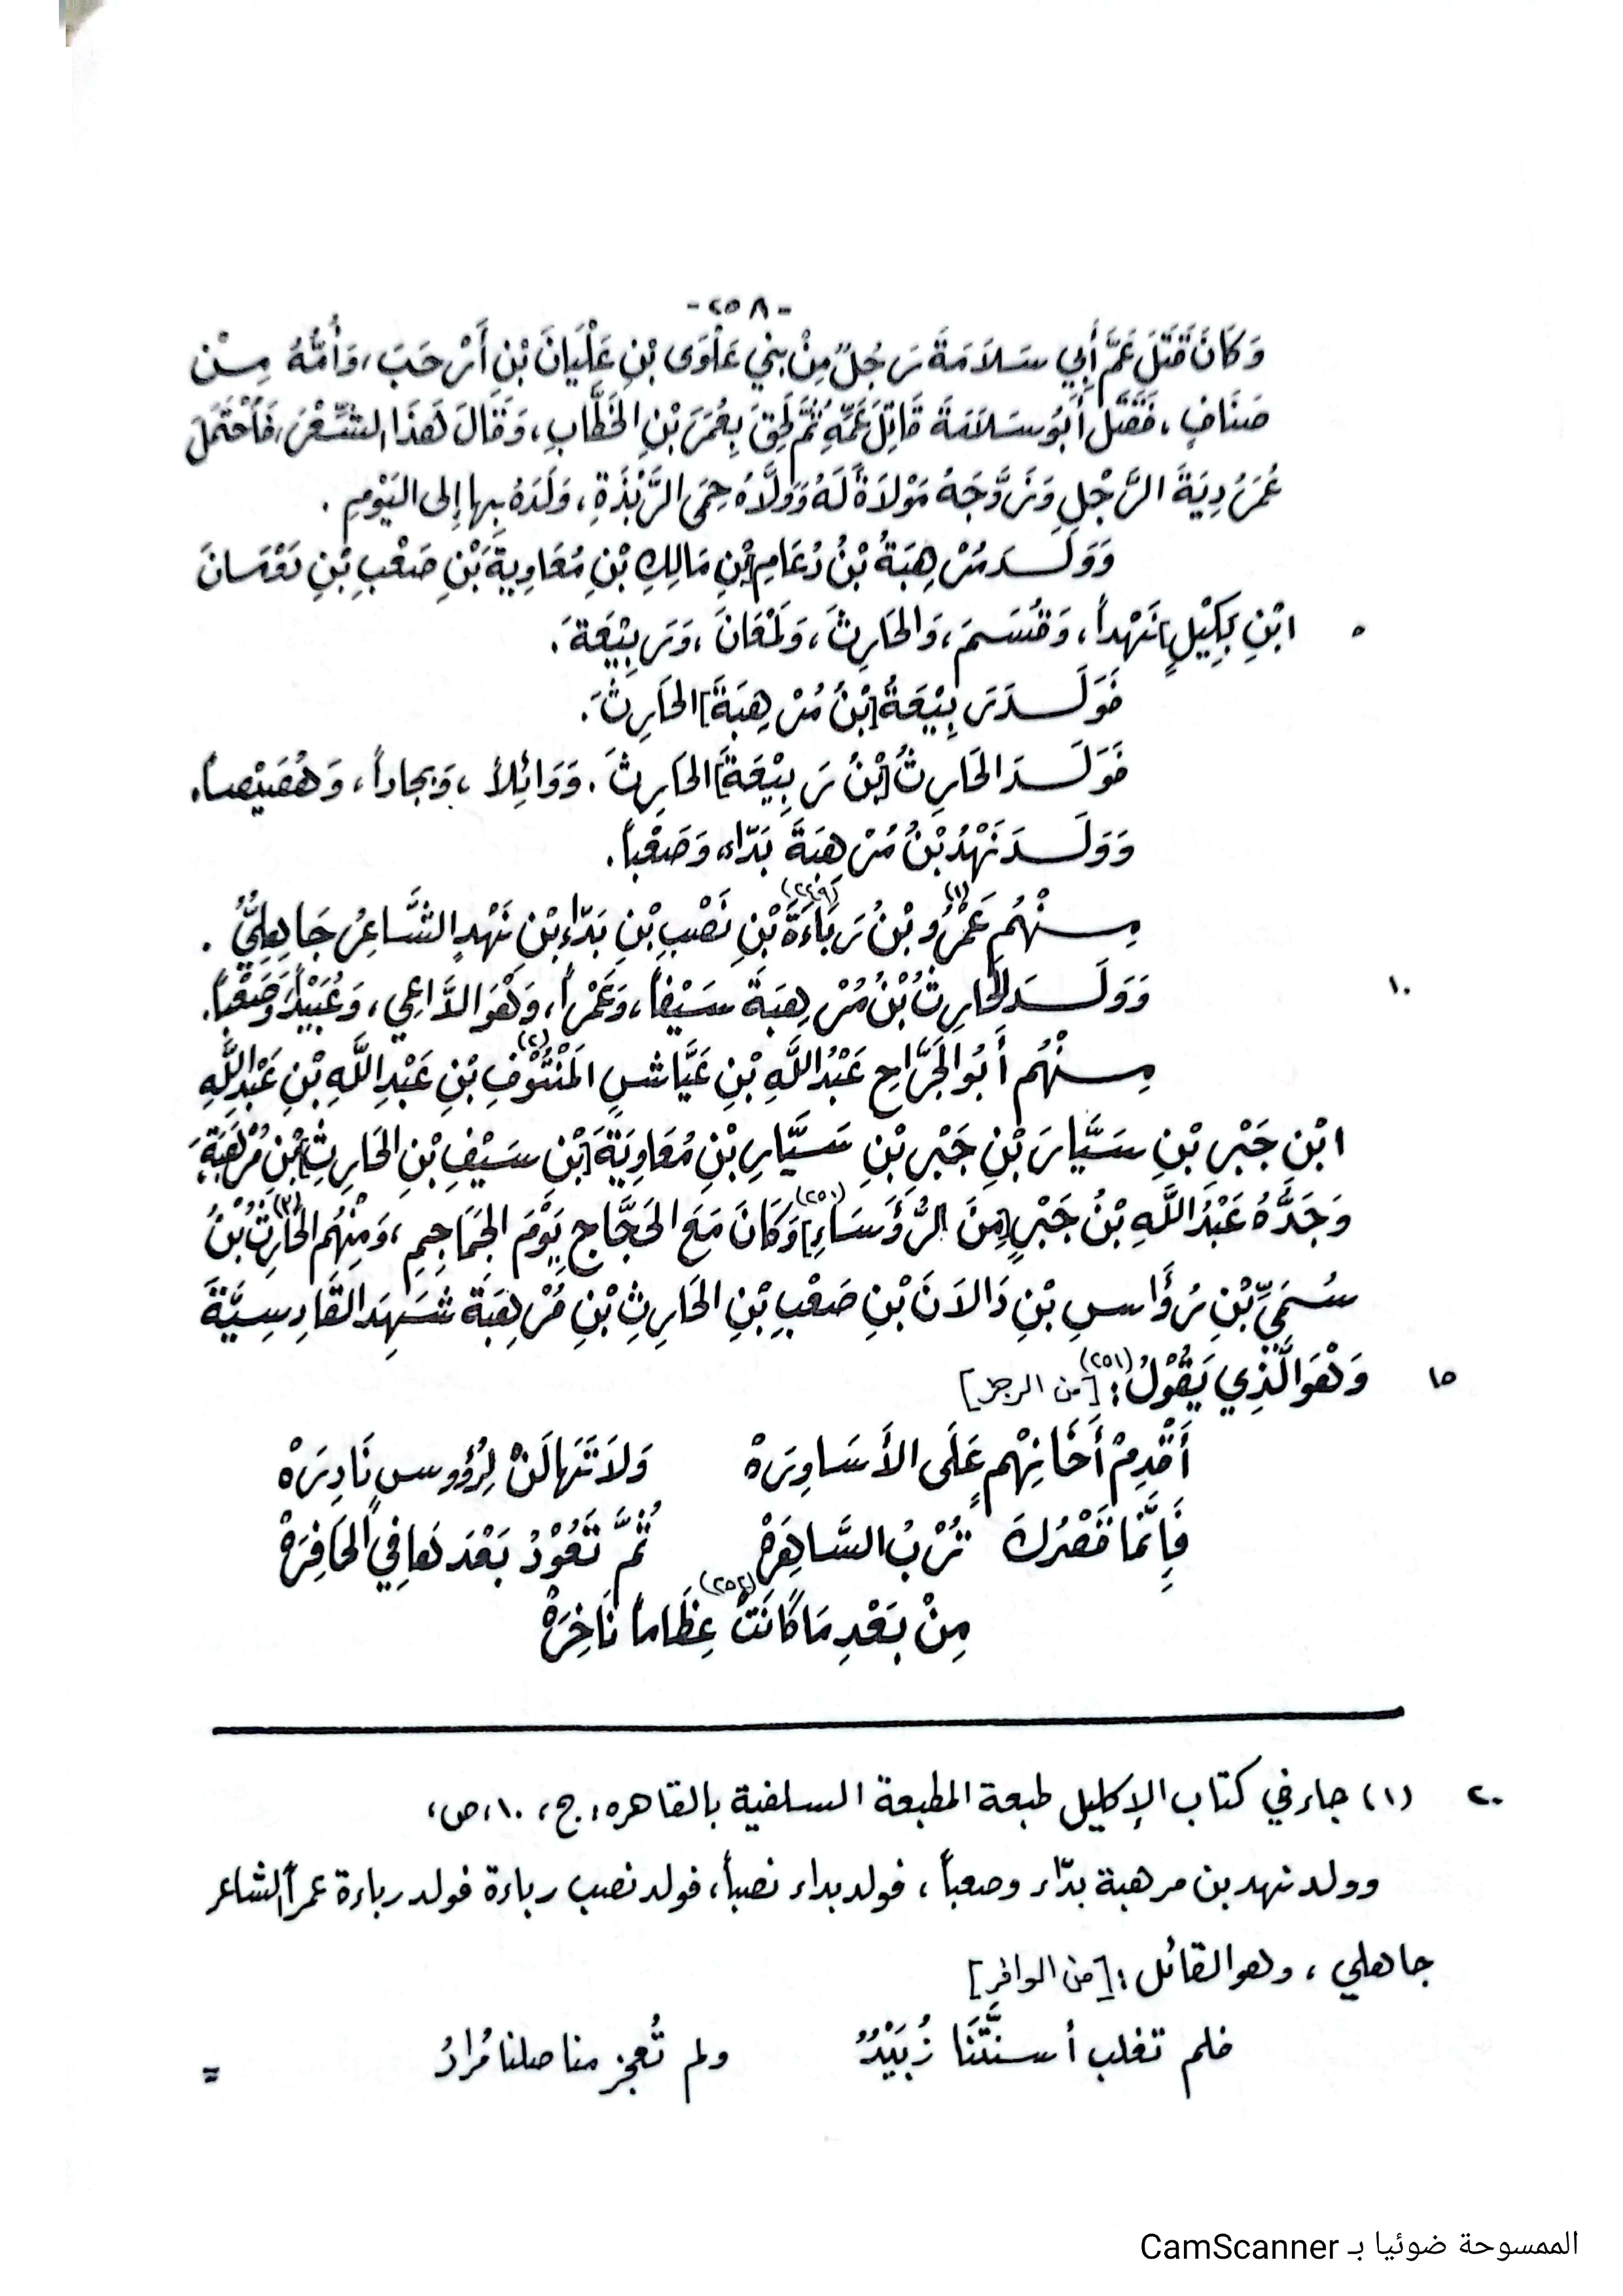 -٢٥٨-
وَكَانَ قَتَلَ عَمَّ أَبِي سَلَامَةَ رَجُلٌ مِنْ بني عَلْوَى بْنِ عَلْيَانَ بْنِ أَرْحَبَ، وَأُمُّهُ مِنْ
صَنَافٍ، فَقَتَلَ أَبُو سَلَامَةَ قَاتِلَ عَمِّهِ ثُمَّ لَحِقَ بِعُمَرَ بْنِ الخَطَّابِ، وَقَالَ هَذَا الشِّعْرَ، فَاحْتَمَلَ
عُمَرُ دِيَةَ الرَّجُلِ وَزَوَّجَهُ مَوْلَاةً لَهُ وَوَلَّاهُ حِمَى الرَّبَذَةِ، وَلَدُهُ بِها إِلى اليَوْمِ.
وَوَلَـدَ مُرْهِبَةُ بْنُ دُعَامِ [بْنِ مَالِكِ بْنِ مُعَاوِيَةَ بْنِ صَعْبِ بْنِ دَوْمَانَ
٥ ابْنِ بَكِيْلٍ] نَهْداً، وَقُسَمَ، وَالحَارِثَ، وَلَمْعَانَ، وَرَبِيْعَةَ.
فَوَلَـدَ رَبِيْعَةُ [بْنُ مُرْهِبَةَ] الحَارِثَ.
فَوَلَـدَ الحَارِثُ [بْنُ رَبِيْعَةَ] الحَارِثَ. وَوَائِلاً، وَبجاداً، وَهُصَيْصاً.
وَوَلَـدَ نَهْدُ بْنُ مُرْهِبَةَ بَدَّاء، وَصَعْباً.
مِـنْهُم عَمْرُو (١) بْنُ رَبَاءَةَ (٢٤٩) بْنِ نَصْبِ بْنِ بَدّاءِ بْنِ نَهْدٍ الشَّاعِرُ جَاهِلِيٌّ.
١٠ وَوَلَـدَ الحَارِثُ بْنُ مُرْهِبَةَ سَيْفاً، وَعَمْراً، وَهْوَ الدَّاعِي، وَعُبَيْداً، وَصَعْباً.
مِـنْهُم أَبُو الجَرَّاحِ عَبْدُ اللَّهِ بْنِ عَيَّاشٍ المَنْتُوْفِ (٢) بْنِ عَبْدِ اللَّهِ بْنِ عَبْدِ اللَّهِ
ابْنِ جَبْرِ بْنِ سَيَّارَ بْنِ جَبْرِ بْنِ سَيَّارِ بْنِ مُعَاوِيَةَ [بْنِ سَيْفِ بْنِ الحَارِثِ] بْنِ مُرْهِبَةَ،
وَجَدُّهُ عَبْدُ اللَّهِ بْنُ جَبْرٍ [مِنَ الرُّؤَسَاءِ] (٢٥٠) وَكَانَ مَعَ الحَجَّاجِ يَوْمَ الجَمَاجِمِ، وَمِنْهُم الحَارِثُ (٣) بْنُ
سُمَيِّ بْنِ رُؤَاسِ بْنِ دَالَانَ بْنِ صَعْبِ بْنِ الحَارِثِ بْنِ مُرْهِبَةَ شَهِدَ القَادِسِيَّةَ
١٥ وَهْوَ الَّذِي يَقُوْلُ: (٢٥١) [من الرجز]
أَقْدِمْ أَخَا نِهْمٍ عَلَى الأَسَاوِرَهْ وَلَا تَهَالَنْ لِرُؤُوسٍ نَادِرَهْ
فَإِنَّمَا قَصْرُكَ تُرْبُ السَّاهِرَهْ ثُمَّ تَعُوْدُ بَعْدَهَا فِي الحَافِرَهْ
مِنْ بَعْدِ مَا كَانَتْ (٢٥٢) عِظَاماً نَاخِرَهْ
٢٠ (١) جاء في كتاب الإكليل طبعة المطبعة السلفية بالقاهره، ج، ١٠، ص،
وولد نهد بن مرهبة بدّاء وصعباً، فولد بداء نصباً، فولد نصب رباءة فولد رباءة عمراً الشاعر
جاهلي، وهو القائل: [من الوافر]
فلم تغلب أسنَّتَنَا زُبَيْدٌ ولم تُعجز مناصلنا مُرادُ =
الممسوحة ضوئيا بـ CamScanner